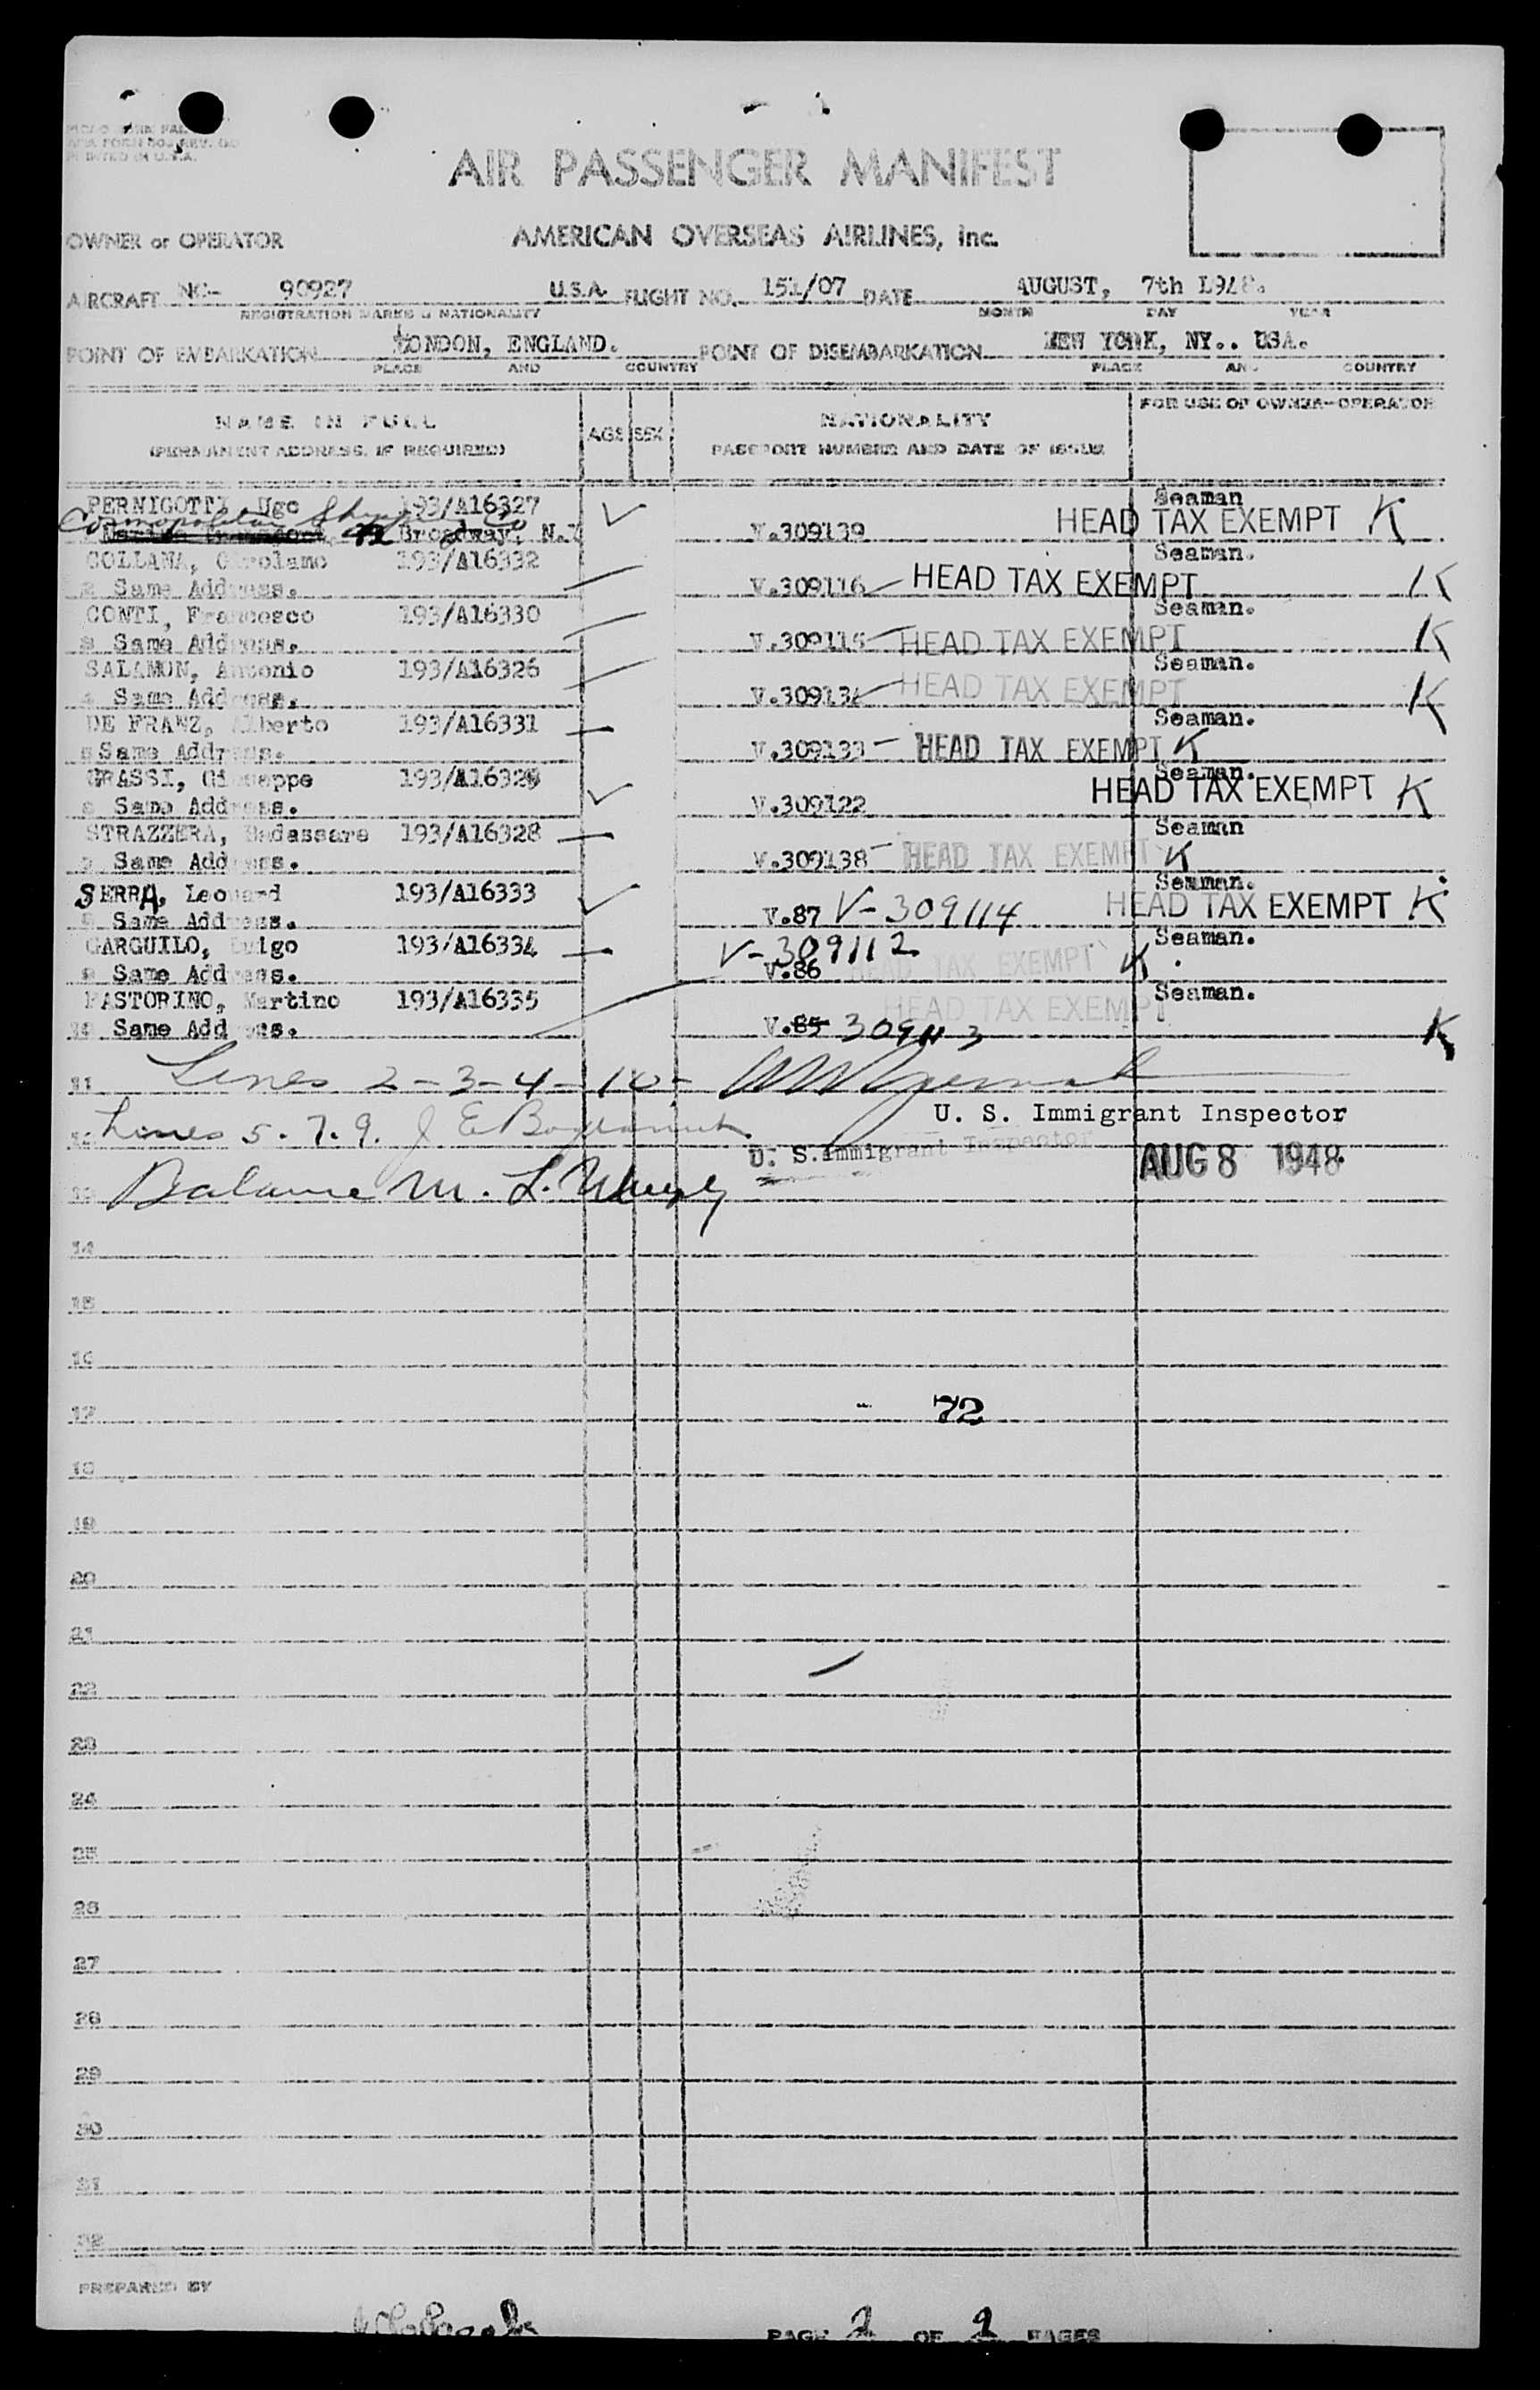 PRINTED IN U.S.A.
AIR PASSENGER MANIFEST
OWNER or OPERATOR AMERICAN OVERSEAS AIRLINES, Inc.
AIRCRAFT NC- 90927 U.S.A. FLIGHT NO. 151/07 DATE AUGUST, 7th L948.
REGISTRATION MARKS & NATIONALITY MONTH DAY YEAR
POINT OF EMBARKATION LONDON, ENGLAND. POINT OF DISEMBARKATION NEW YORK, NY.. USA.
PLACE AND COUNTRY PLACE AND COUNTRY
NAME IN FULL AGE SEX NATIONALITY FOR USE OF OWNER-OPERATOR
(PERMANENT ADDRESS, IF REQUIRED) PASSPORT NUMBER AND DATE OF ISSUE
PERNIGOTTI, Ugo 193/A16327 Seaman
Cosmopolitan Shipping Co 42 Broadway, N.Y V.309139 HEAD TAX EXEMPT K
COLLANA, Gerolamo 193/A16332 Seaman.
Same Address. V.309116 HEAD TAX EXEMPT K
CONTI, Francesco 193/A16330 Seaman.
Same Address. V.309115 HEAD TAX EXEMPT K
SALAMON, Antonio 193/A16326 Seaman.
Same Address. V.309134 HEAD TAX EXEMPT K
DE FRANZ, Alberto 193/A16331 Seaman.
Same Address. V.309133 HEAD TAX EXEMPT K
GRASSI, Giuseppe 193/A16329 Seaman.
Same Address. V.309122 HEAD TAX EXEMPT K
STRAZZERA, Badassare 193/A16328 Seaman
Same Address. V.309138 HEAD TAX EXEMPT K
SERRA, Leonard 193/A16333 Seaman.
Same Address. V.87 V-309114 HEAD TAX EXEMPT K
GARGUILO, Luigo 193/A16334 V-309112 Seaman.
Same Address. V.86 HEAD TAX EXEMPT K
PASTORINO, Martino 193/A16335 Seaman.
10 Same Address. V.85 309113 HEAD TAX EXEMPT K
11 Lines 2-3-4-10-
U. S. Immigrant Inspector
12 Lines 5. 7. 9. J E
U. S. Immigrant Inspector AUG 8 1948
13 Balance M. L.
14
15
16
17 72
18
19
20
21
22
23
24
25
26
27
28
29
30
31
32
PREPARED BY
PAGE 2 OF 2 PAGES